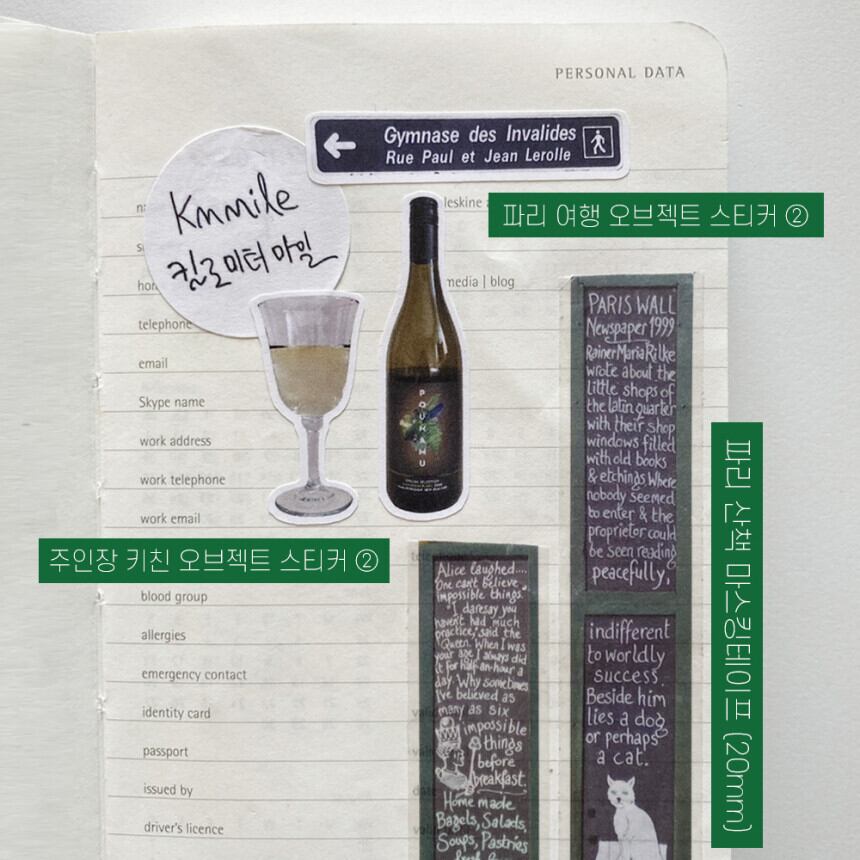 PERSONAL DATA
Gymnase des Invalides
Rue Paul et Jean Lerolle
Kmmile
킬로미터마일
파리 여행 오브젝트 스티커 ②
leskine
media | blog
telephone
email
Skype name
work address
work telephone
work email
POUNAMU
주인장 키친 오브젝트 스티커 ②
blood group
allergies
emergency contact
identity card
passport
issued by
driver's licence
PARIS WALL
Newspaper 1999
Rainer Maria Rilke
wrote about the
little shops of
the latin quarter
with their shop
windows filled
with old books
& etchings where
nobody seemed
to enter & the
proprietor could
be seen reading
peacefully,
indifferent
to worldly
success.
Beside him
lies a dog
or perhaps
a cat.
파리 산책 마스킹테이프 (20mm)
Alice laughed....
One can't believe
impossible things."
"I daresay you
haven't had much
practice," said the
Queen. When I was
your age I always did
it for half-an-hour a
day. Why sometimes
I've believed as
many as six
impossible
things
before
breakfast.
Home made
Bagels, Salads,
Soups, Pastries